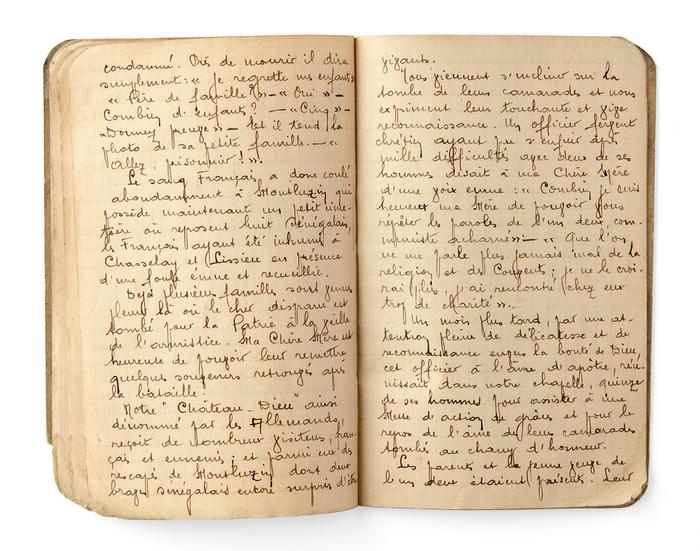 condamné. Près de mourir il dira
simplement: « Je regrette mes enfants »
« Père de famille? » — « Oui » —
Combien d'enfants? — « Cinq » —
« Donnez preuve » — Et il tend la
photo de sa petite famille. — «
Allez, prisonnier! ».
Le sang Français a donc coulé
abondamment à Montluzin qui
possède maintenant un petit cime-
tière où reposent huit Sénégalais,
les Français ayant été inhumés à
Chasselay et Lissieu en présence
d'une foule émue et recueillie.
Déjà plusieurs familles sont venues
pleurer là où le cher disparu est
tombé pour la Patrie à la veille
de l'armistice. Ma Chère Mère est
heureuse de pouvoir leur remettre
quelques souvenirs retrouvés après
la bataille.
Notre "Château-Dieu" ainsi
dénommé par les Allemands,
reçoit de nombreux visiteurs, fran-
çais et ennemis; et parmi eux des
rescapés de Montluzin dont deux
braves sénégalais encore surpris d'être
vivants.
Tous viennent s'incliner sur la
tombe de leurs camarades et nous
expriment leur touchante et vive
reconnaissance. Un officier fervent
chrétien ayant pu s'enfuir après
mille difficultés avec deux de ses
hommes disait à ma Chère Mère
d'une voix émue: « Combien je suis
heureux ma Mère de pouvoir vous
répéter les paroles de l'un deux, com-
muniste acharné » — « Que l'on
ne me parle plus jamais mal de la
religion et des Couvents; je ne le croi-
rai plus, j'ai rencontré chez eux
trop de charité ».
Un mois plus tard, par une at-
tention pleine de délicatesse et de
reconnaissance envers la bonté de Dieu,
cet officier à l'âme d'apôtre, réu-
nissait dans notre chapelle, quinze
de ses hommes pour assister à une
Messe d'action de grâces et pour le
repos de l'âme de leurs camarades
tombés au champ d'honneur.
Les parents et la jeune veuve de
l'un deux étaient présents. Leur